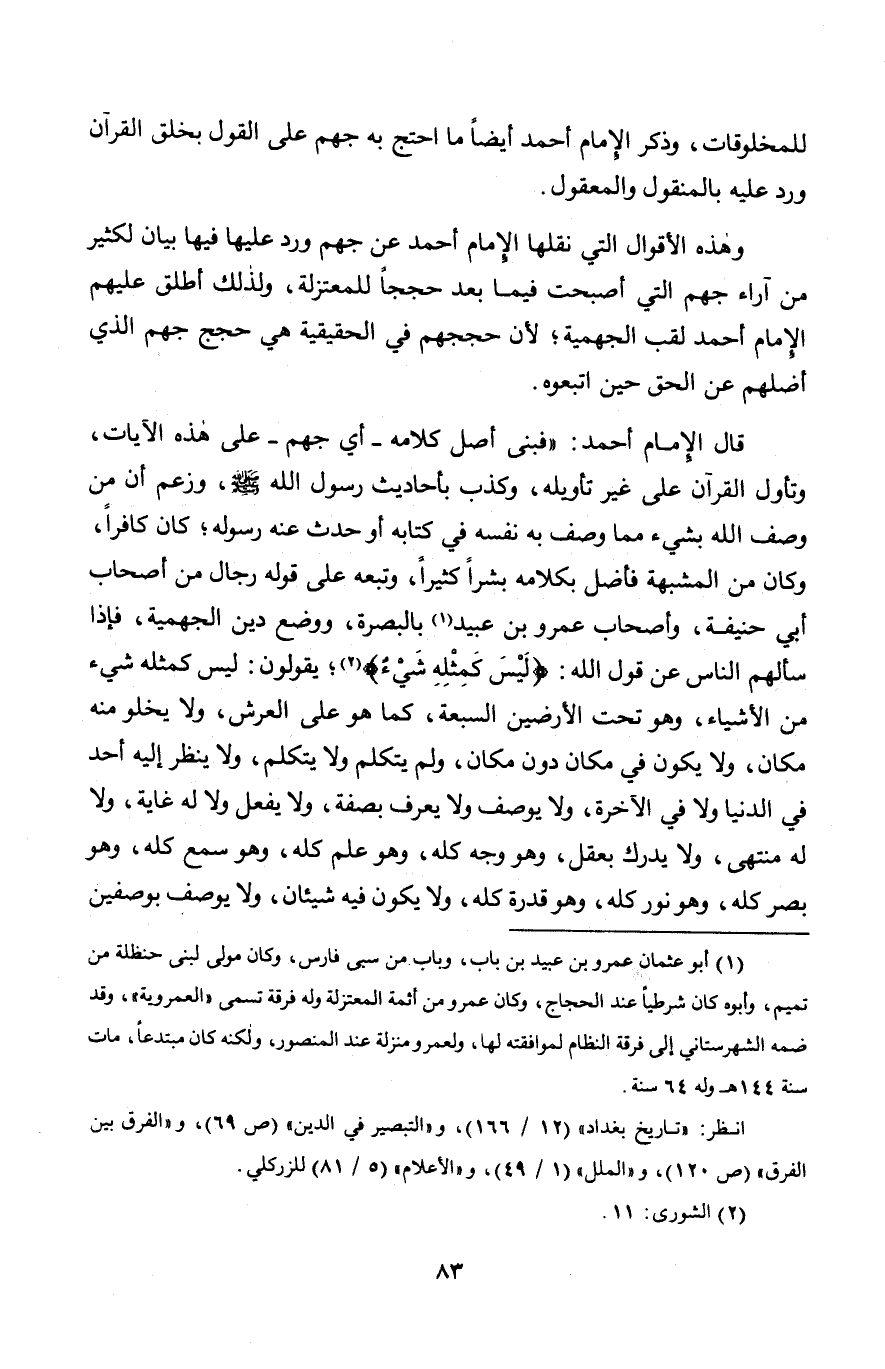 للمخلوقات، وذكر الإمام أحمد أيضاً ما احتج به جهم على القول بخلق القرآن
ورد عليه بالمنقول والمعقول.
وهٰذه الأقوال التي نقلها الإمام أحمد عن جهم ورد عليها فيها بيان لكثير
من آراء جهم التي أصبحت فيما بعد حججاً للمعتزلة، ولذٰلك أطلق عليهم
الإمام أحمد لقب الجهمية؛ لأن حججهم في الحقيقية هي حجج جهم الذي
أضلهم عن الحق حين اتبعوه.
قال الإمام أحمد: «فبنى أصل كلامه ـ أي جهم ـ على هٰذه الآيات،
وتأول القرآن على غير تأويله، وكذب بأحاديث رسول الله ﷺ، وزعم أن من
وصف الله بشيء مما وصف به نفسه في كتابه أو حدث عنه رسوله؛ كان كافراً،
وكان من المشبهة فأضل بكلامه بشراً كثيراً، وتبعه على قوله رجال من أصحاب
أبي حنيفة، وأصحاب عمرو بن عبيد(١) بالبصرة، ووضع دين الجهمية، فإذا
سألهم الناس عن قول الله: ﴿لَيْسَ كَمِثْلِهِ شَيْءٌ﴾(٢)؛ يقولون: ليس كمثله شيء
من الأشياء، وهو تحت الأرضين السبعة، كما هو على العرش، ولا يخلو منه
مكان، ولا يكون في مكان دون مكان، ولم يتكلم ولا يتكلم، ولا ينظر إليه أحد
في الدنيا ولا في الآخرة، ولا يوصف ولا يعرف بصفة، ولا يفعل ولا له غاية، ولا
له منتهى، ولا يدرك بعقل، وهو وجه كله، وهو علم كله، وهو سمع كله، وهو
بصر كله، وهو نور كله، وهو قدرة كله، ولا يكون فيه شيئان، ولا يوصف بوصفين
(١) أبو عثمان عمرو بن عبيد بن باب، وباب من سبى فارس، وكان مولى لبنى حنظلة من
تميم، وأبوه كان شرطياً عند الحجاج، وكان عمرو من أئمة المعتزلة وله فرقة تسمى «العمروية»، وقد
ضمه الشهرستاني إلى فرقة النظام لموافقته لها، ولعمرو منزلة عند المنصور، ولٰكنه كان مبتدعاً، مات
سنة ١٤٤هـ وله ٦٤ سنة.
انظر: «تاريخ بغداد» (١٢ / ١٦٦)، و«التبصير في الدين» (ص ٦٩)، و«الفرق بين
الفرق» (ص ١٢٠)، و«الملل» (١ / ٤٩)، و«الأعلام» (٥ / ٨١) للزركلي.
(٢) الشورى: ١١.
٨٣